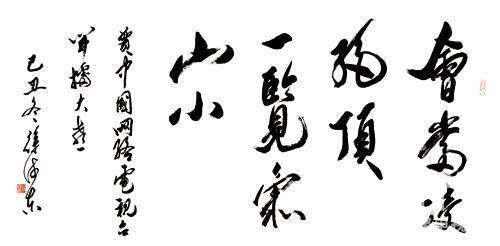 會當凌
絕頂
一覽眾
山小
賀中國网絡電視台
開播大喜
己丑冬